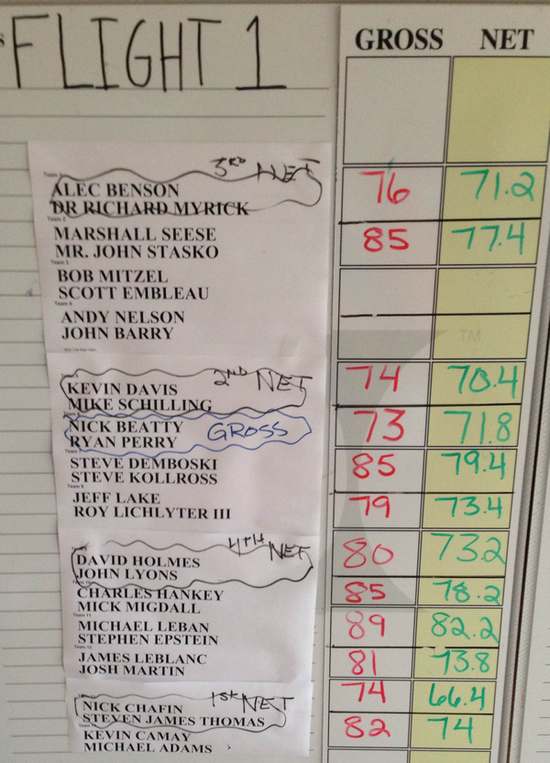 FLIGHT 1
GROSS NET
3RD NET
ALEC BENSON 76 71.2
DR RICHARD MYRICK
Team 2
MARSHALL SEESE 85 77.4
MR. JOHN STASKO
Team 3
BOB MITZEL
SCOTT EMBLEAU
ANDY NELSON
JOHN BARRY
2ND NET
KEVIN DAVIS 74 70.4
MIKE SCHILLING
NICK BEATTY GROSS 73 71.8
RYAN PERRY
STEVE DEMBOSKI 85 79.4
STEVE KOLLROSS
JEFF LAKE 79 73.4
ROY LICHLYTER III
4TH NET
DAVID HOLMES 80 732
JOHN LYONS
CHARLES HANKEY 85 78.2
MICK MIGDALL
MICHAEL LEBAN 89 82.2
STEPHEN EPSTEIN
JAMES LEBLANC 81 73.8
JOSH MARTIN
1st NET
NICK CHAFIN 74 66.4
STEVEN JAMES THOMAS
KEVIN CAMAY 82 74
MICHAEL ADAMS